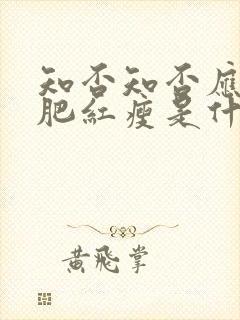 知否知否應
肥紅瘦是什
黃飛掌